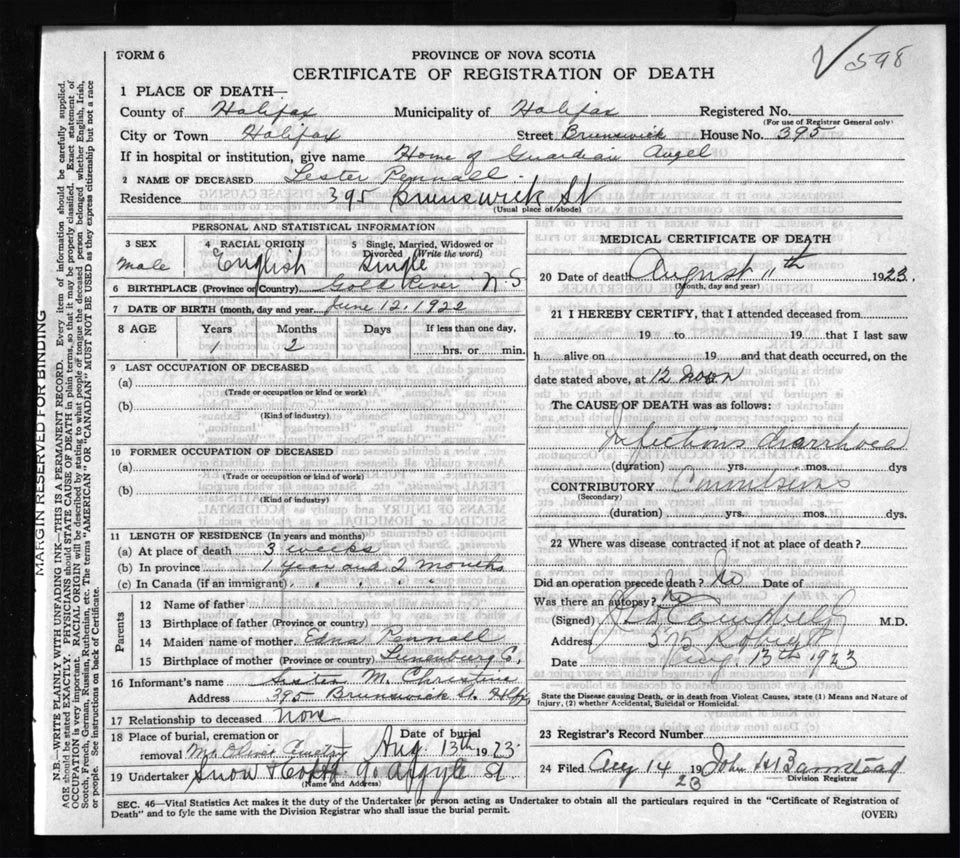 FORM 6
PROVINCE OF NOVA SCOTIA
CERTIFICATE OF REGISTRATION OF DEATH
598
1 PLACE OF DEATH—
County of Halifax Municipality of Halifax Registered No.
(For use of Registrar General only)
City or Town Halifax Street Brunswick House No. 395
If in hospital or institution, give name Home of Guardian Angel
2 NAME OF DECEASED Lester Pennall
Residence 395 Brunswick St
(Usual place of abode)
PERSONAL AND STATISTICAL INFORMATION
3 SEX 4 RACIAL ORIGIN 5 Single, Married, Widowed or Divorced (Write the word)
Male English Single
6 BIRTHPLACE (Province or Country) Gold River N.S
7 DATE OF BIRTH (month, day and year) June 12, 1922
8 AGE Years Months Days If less than one day,
1 2 hrs. or min.
9 LAST OCCUPATION OF DECEASED
(a)
(Trade or occupation or kind or work)
(b)
(Kind of industry)
10 FORMER OCCUPATION OF DECEASED
(a)
(Trade or occupation or kind of work)
(b)
(Kind of industry)
11 LENGTH OF RESIDENCE (In years and months)
(a) At place of death 3 weeks
(b) In province 1 year and 2 months
(c) In Canada (if an immigrant)
Parents
12 Name of father
13 Birthplace of father (Province or country)
14 Maiden name of mother Edna Pennall
15 Birthplace of mother (Province or country) Lunenburg C.
16 Informant's name Sister M. Christina
Address 395 Brunswick St. Hlfx
17 Relationship to deceased none
18 Place of burial, cremation or removal Mt. Olivet Cmetry Date of burial Aug. 13th 1923
19 Undertaker Snow & Co 90 Argyle St
(Name and Address)
MEDICAL CERTIFICATE OF DEATH
20 Date of death August 11th 1923.
(Month, day and year)
21 I HEREBY CERTIFY, that I attended deceased from
19 to 19, that I last saw
h alive on 19 and that death occurred, on the
date stated above, at 12 noon
The CAUSE OF DEATH was as follows:
Infectious diarrhoea
(duration) yrs. mos. dys
CONTRIBUTORY Convulsions
(Secondary)
(duration) yrs. mos. dys.
22 Where was disease contracted if not at place of death?
Did an operation precede death? No Date of
Was there an autopsy? No
(Signed) Campbell M.D.
Address 375 Robie St
Date Aug. 13th 1923
State the Disease causing Death, or in death from Violent Causes, state (1) Means and Nature of
Injury, (2) whether Accidental, Suicidal or Homicidal.
23 Registrar's Record Number
24 Filed Aug 14 1923 John H Barnstead
Division Registrar
SEC. 46—Vital Statistics Act makes it the duty of the Undertaker or person acting as Undertaker to obtain all the particulars required in the "Certificate of Registration of
Death" and to fyle the same with the Division Registrar who shall issue the burial permit.
(OVER)
MARGIN RESERVED FOR BINDING
N.B.—WRITE PLAINLY WITH UNFADING INK—THIS IS A PERMANENT RECORD. Every item of information should be carefully supplied.
AGE should be stated EXACTLY. PHYSICIANS should STATE CAUSE OF DEATH in plain terms, so that it may be properly classified. Exact statement of
OCCUPATION is very important. RACIAL ORIGIN will be described by stating to what people or tongue the deceased person belonged whether English, Irish,
Scotch, French, German, Russian, Ruthenian, etc. The terms "AMERICAN" OR "CANADIAN" MUST NOT BE USED as they express citizenship but not a race
or people. See instructions on back of Certificate.